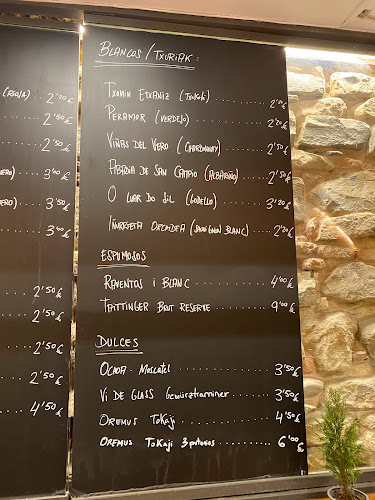 (RIOJA) 2'20€
2'50€
2'50€
3'00€
3'50€
3'00€
2'50€
2'50€
2'50€
2'50€
4'50€
BLANCOS / TXURIAK :
TXOMIN ETXANIZ (TXAKOLI) 2'20€
PERAMOR (VERDEJO) 2'20€
VIÑAS DEL VERO (CHARDONNAY) 2'50€
ABADIA DE SAN CAMPIO (ALBARIÑO) 2'50€
O LUAR DO SIL (GODELLO) 3'20€
INURRIETA ORCHIDEA (SAUVIGNON BLANC) 2'20€
ESPUMOSOS
RAVENTOS I BLANC 4'00€
TAITTINGER BRUT RESERVE 9'00€
DULCES
OCHOA MOSCATEL 3'50€
VI DE GLASS Gewürztraminer 3'50€
OREMUS TOKAJI 4'50€
OREMUS TOKAJI 3 puttonios 6'00€